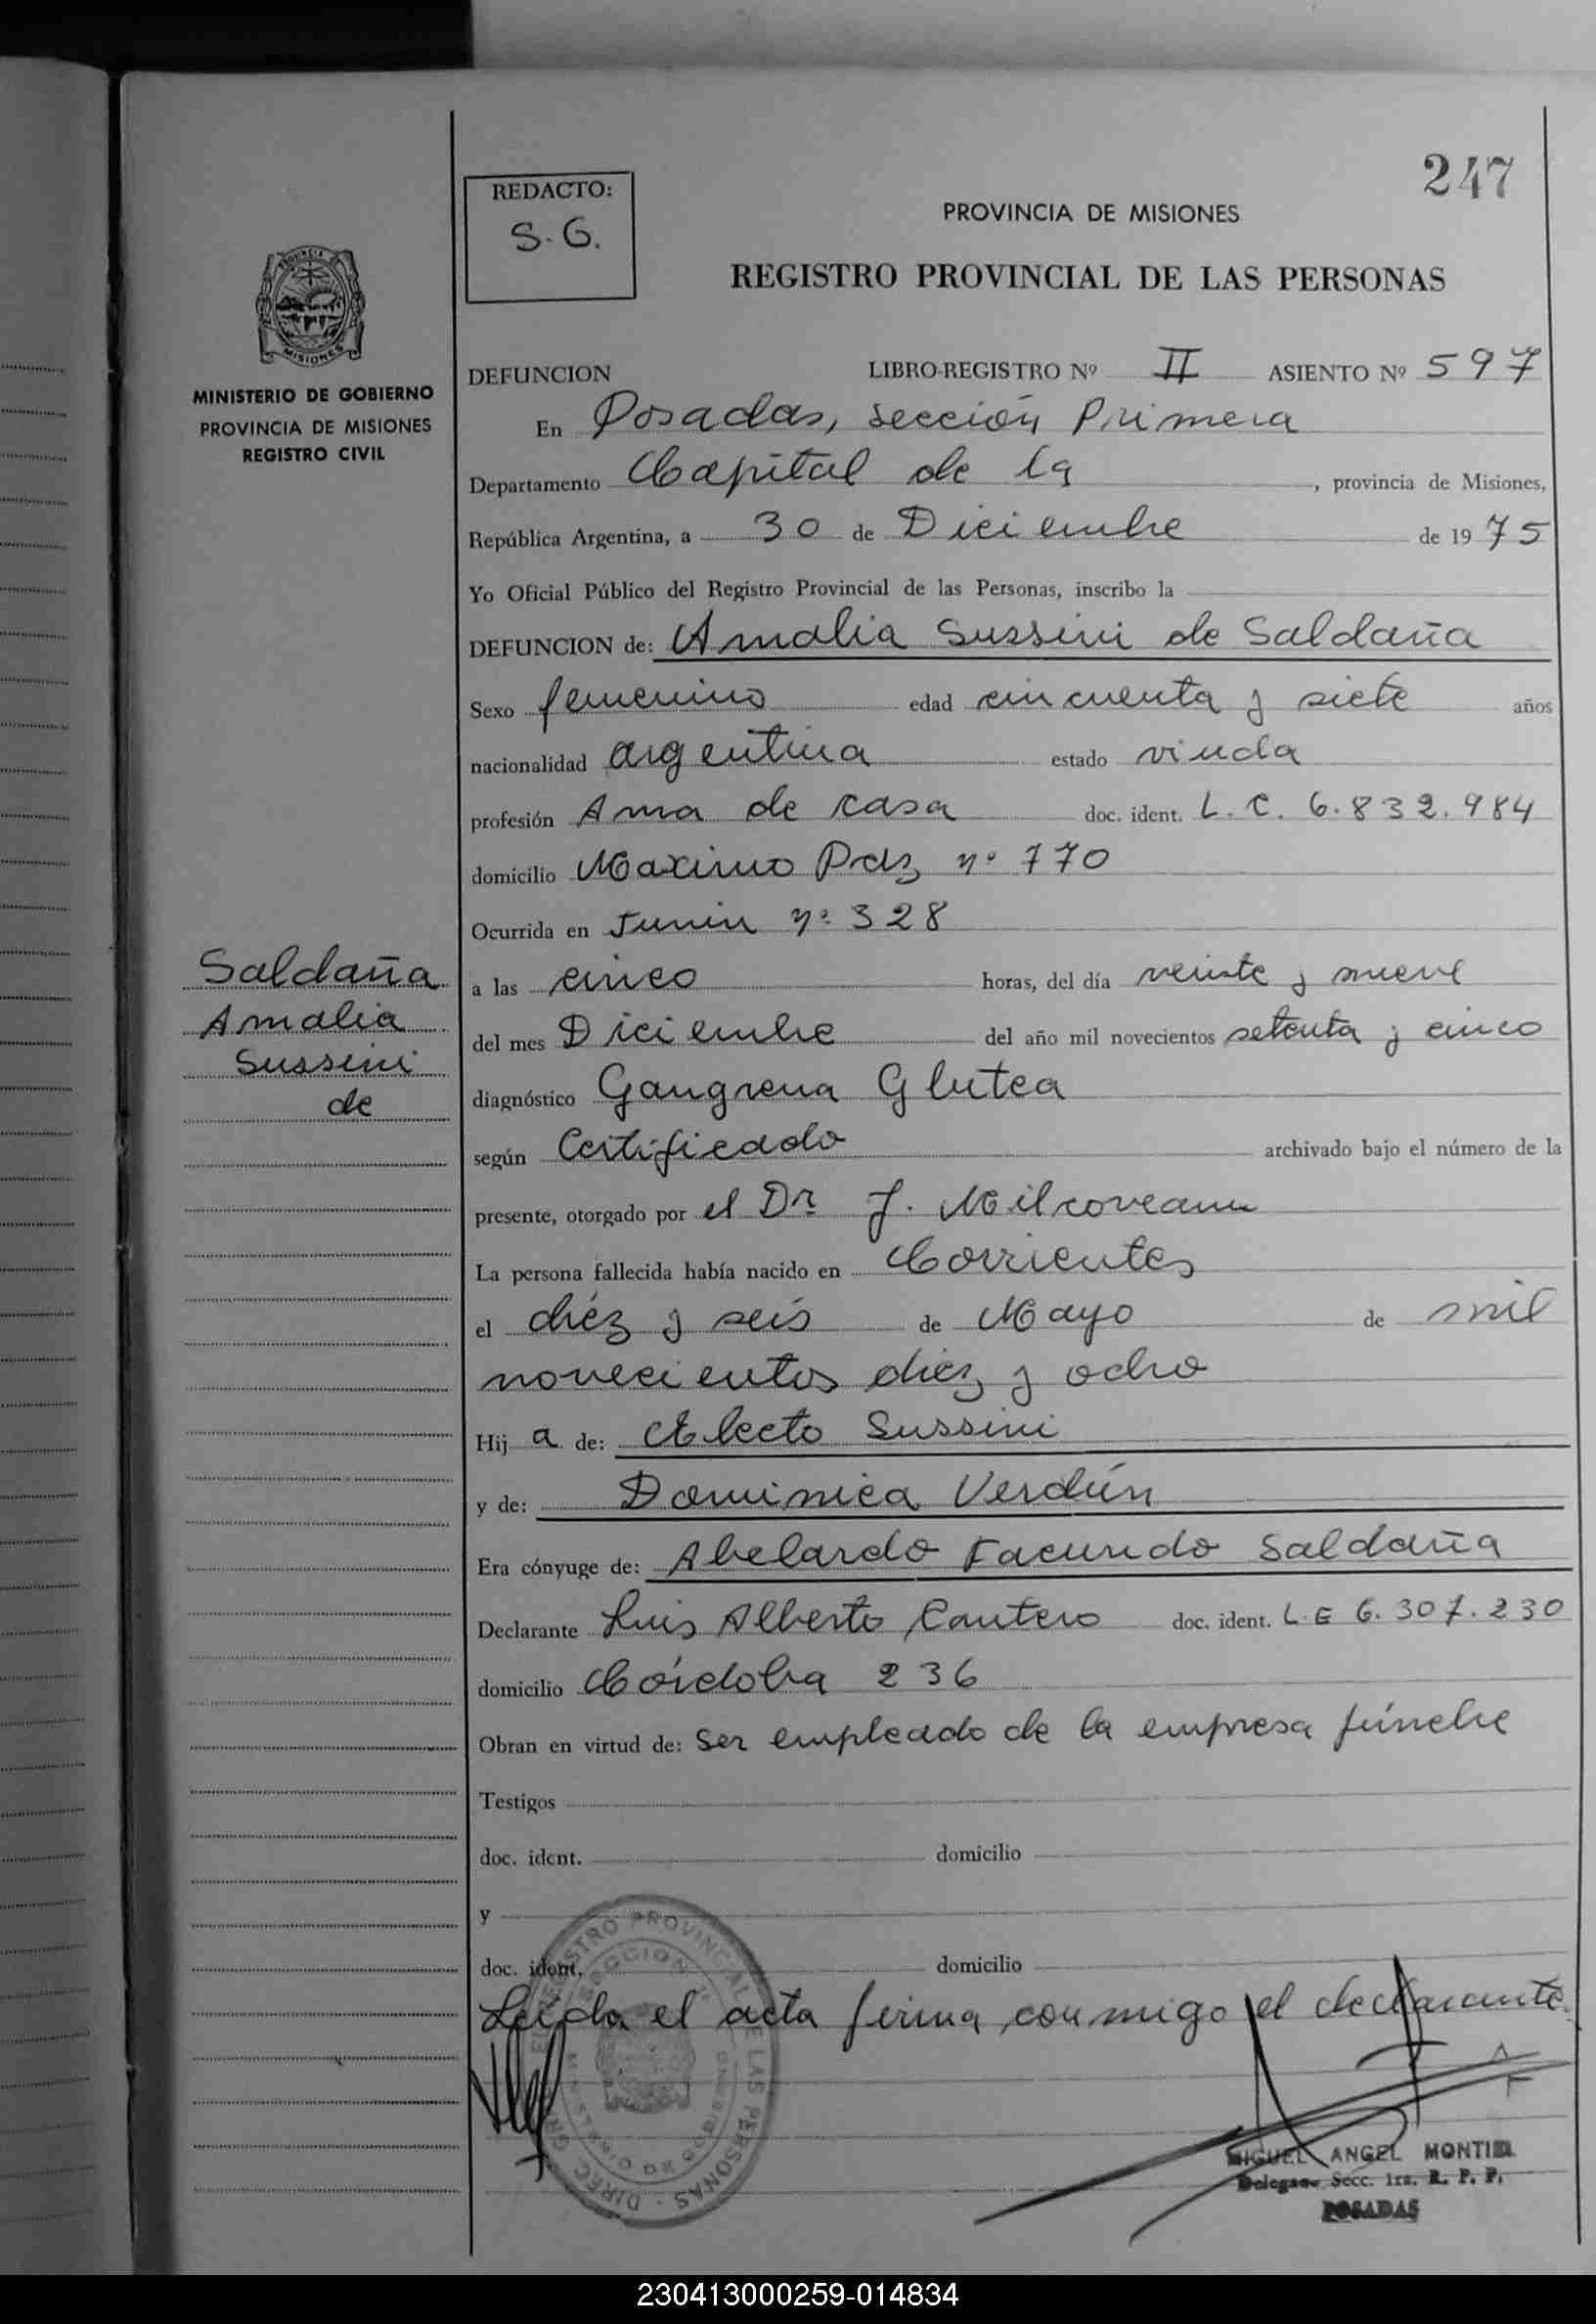 247
REDACTO:
S. G.
PROVINCIA DE MISIONES
REGISTRO PROVINCIAL DE LAS PERSONAS
PROVINCIA DE
MISIONES
MINISTERIO DE GOBIERNO
PROVINCIA DE MISIONES
REGISTRO CIVIL
DEFUNCION LIBRO-REGISTRO Nº II ASIENTO Nº 597
En Posadas, sección Primera
Departamento Capital de la , provincia de Misiones,
República Argentina, a 30 de Diciembre de 1975
Yo Oficial Público del Registro Provincial de las Personas, inscribo la
DEFUNCION de: Amalia Sussini de Saldaña
Sexo femenino edad cincuenta y siete años
nacionalidad argentina estado viuda
profesión Ama de casa doc. ident. L. C. 6.832.984
domicilio Maximo Paz nº 770
Ocurrida en Junin nº 328
Saldaña
Amalia
Sussini
de
a las cinco horas, del día veinte y nueve
del mes Diciembre del año mil novecientos setenta y cinco
diagnóstico Gangrena Glutea
según Certificado archivado bajo el número de la
presente, otorgado por el Dr J. Milcoveanu
La persona fallecida había nacido en Corrientes
el diéz y seis de Mayo de mil
novecientos diez y ocho
Hij a de: Electo Sussini
y de: Dominica Verdún
Era cónyuge de: Abelardo Facundo Saldaña
Declarante Luis Alberto Cantero doc. ident. L.E 6.307.230
domicilio Córdoba 236
Obran en virtud de: Ser empleado de la empresa fúnebre
Testigos
doc. ident. domicilio
y
doc. ident. domicilio
Leída el acta firma conmigo el declarante.
MIGUEL ANGEL MONTIEL
Delegado Secc. 1ra. R. P. P.
POSADAS
230413000259-014834